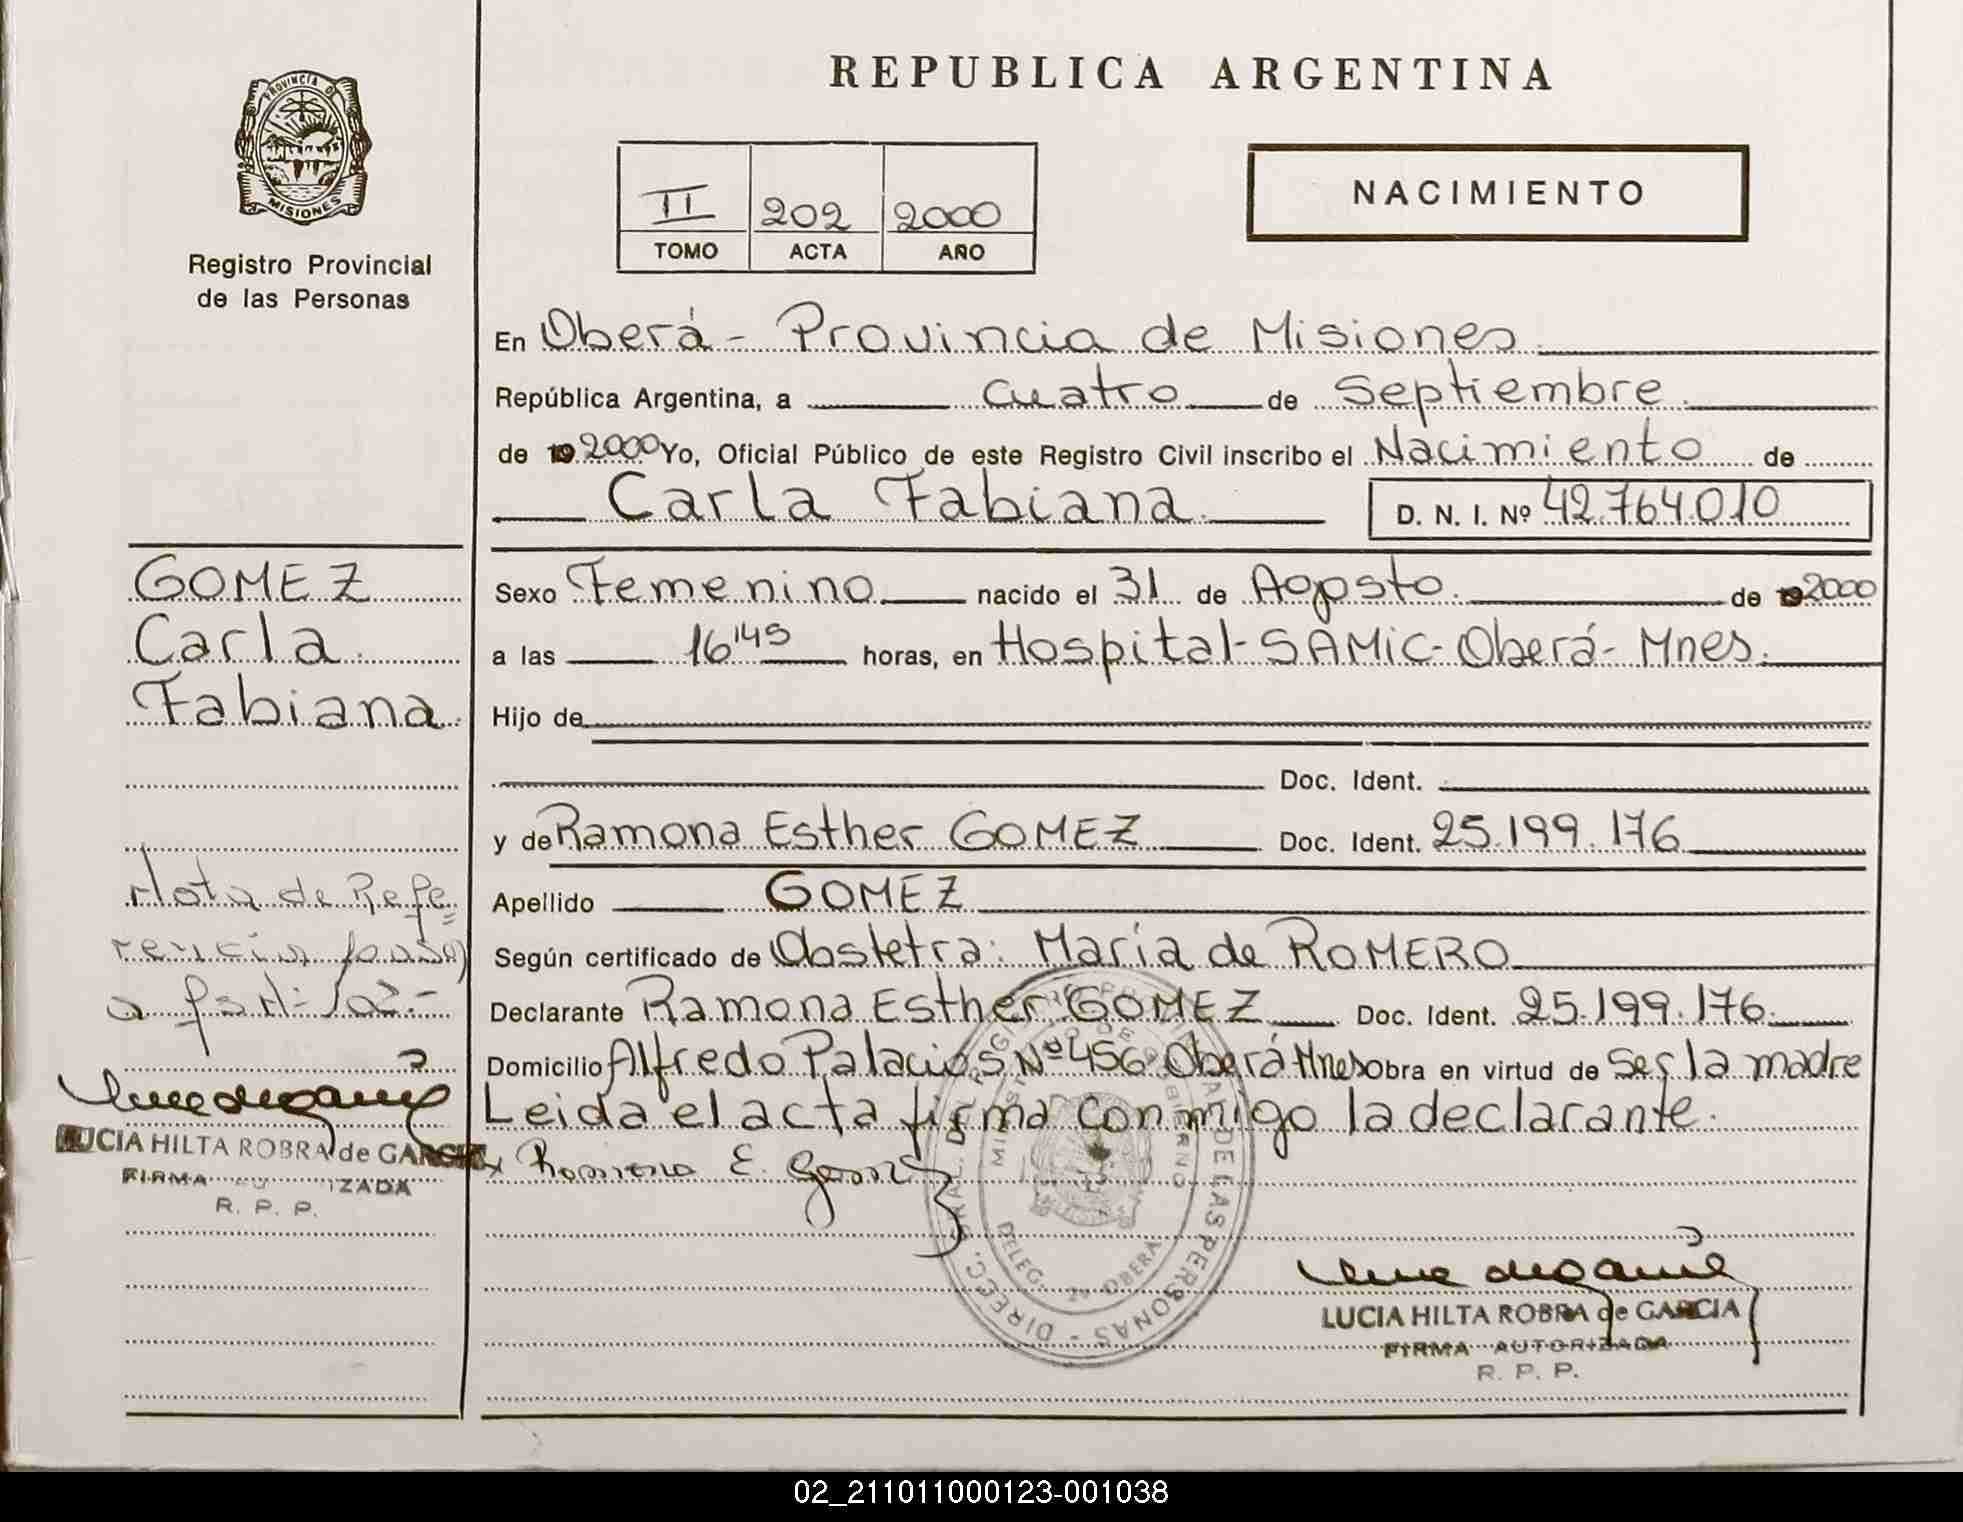 PROVINCIA DE
MISIONES
Registro Provincial
de las Personas
REPUBLICA ARGENTINA
II 202 2000
TOMO ACTA AÑO
NACIMIENTO
En Oberá - Provincia de Misiones.
República Argentina, a cuatro de Septiembre.
de 19 2000 Yo, Oficial Público de este Registro Civil inscribo el Nacimiento de
Carla Fabiana.
D. N. I. Nº 42.764.010
GOMEZ
Carla
Fabiana.
Sexo Femenino nacido el 31 de Agosto. de 19 2000
a las 16'45 horas, en Hospital-SAMIC-Oberá-Mnes.
Hijo de
Doc. Ident.
y de Ramona Esther GOMEZ Doc. Ident. 25.199.176
Apellido GOMEZ
Según certificado de Obstetra: María de ROMERO
Declarante Ramona Esther GOMEZ Doc. Ident. 25.199.176
Domicilio Alfredo Palacios Nº 456 Oberá Mnes Obra en virtud de ser la madre
Leida el acta firma conmigo la declarante.
Ramona E. Gomez
Nota de Refe
rencia
a
LUCIA HILTA ROBRA de GARCIA
FIRMA AUTORIZADA
R. P. P.
DELEG. OBERA
DE LAS PERSONAS - DIRECC. GRAL. DEL
LUCIA HILTA ROBRA de GARCIA
FIRMA AUTORIZADA
R. P. P.
02_211011000123-001038